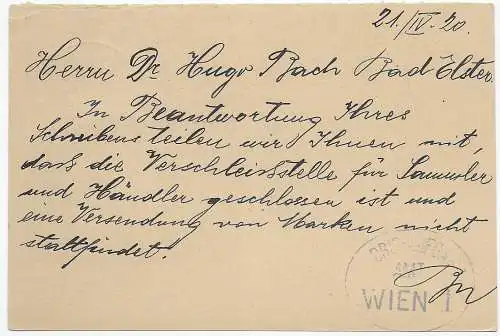 21./IV. 20.
Herrn Dr. Hugo Bach Bad Elster.
In Beantwortung Ihres
Schreibens teilen wir Ihnen mit,
daß die Verschleißstelle für Sammler
und Händler geschlossen ist und
eine Versendung von Marken nicht
stattfindet.
AMT
WIEN 1